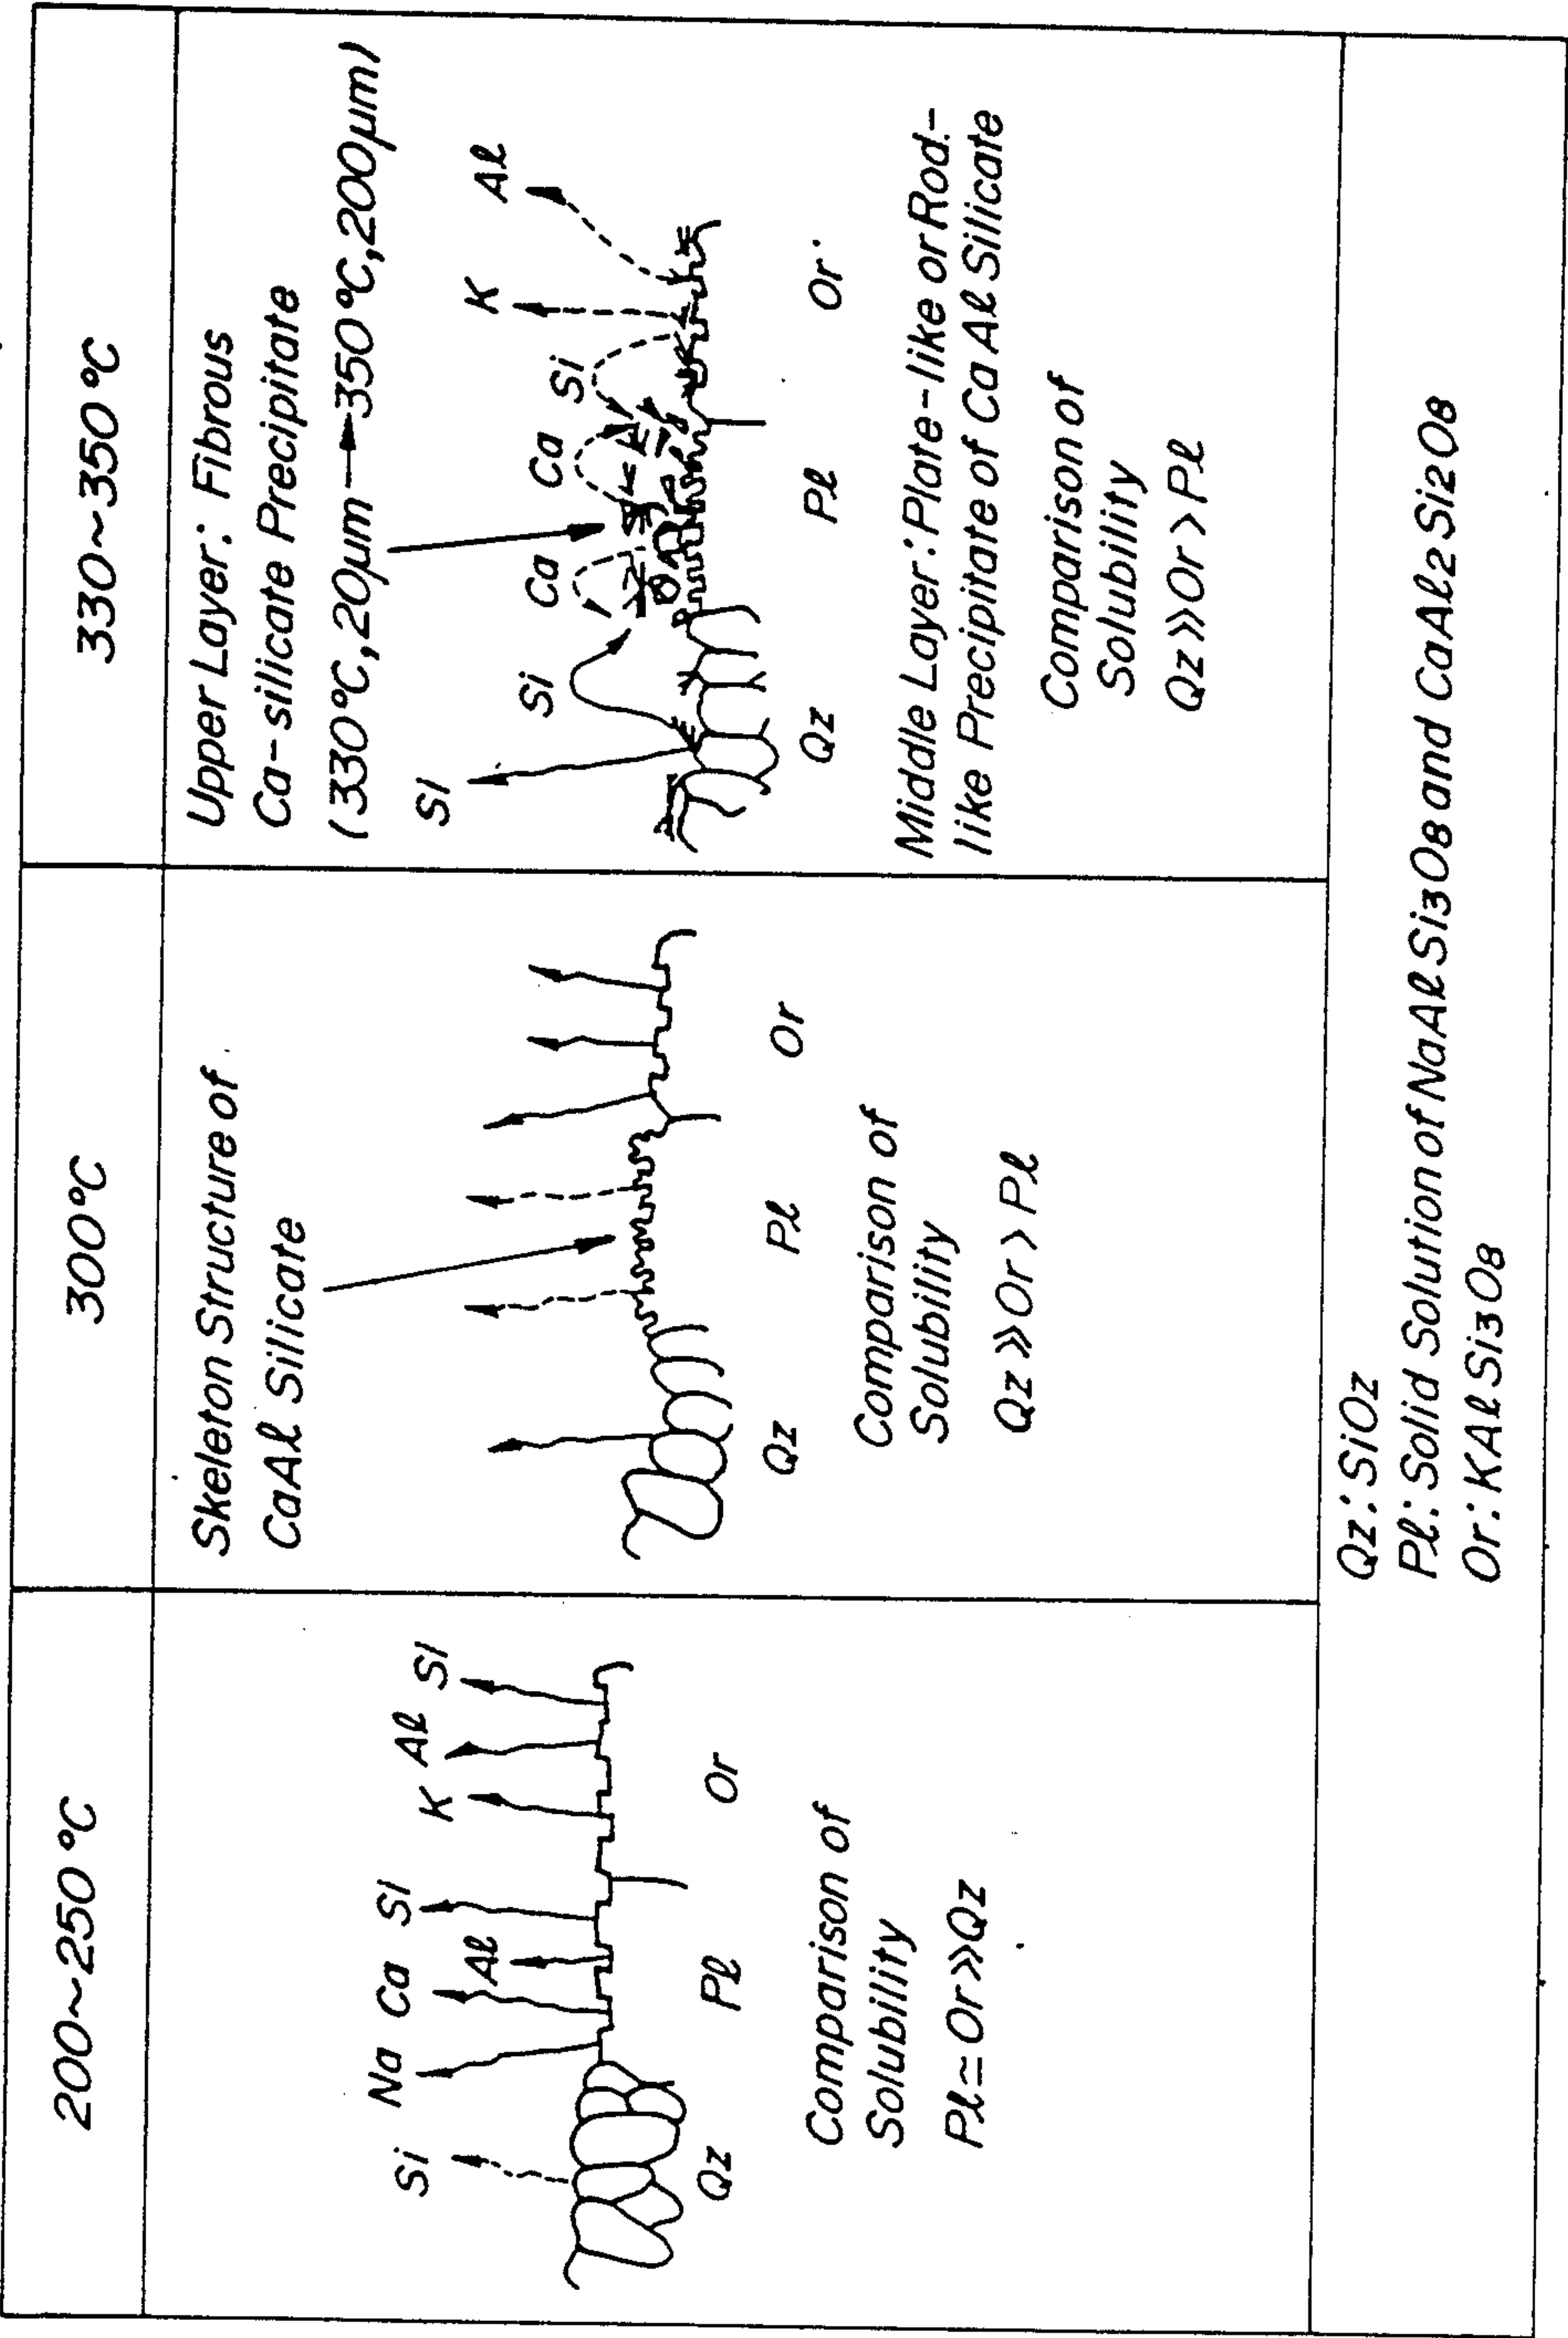 200~250°C
Si
Na
Ca
Al
Si
K
Al
Si
Qz
Pℓ
Or
Comparison of
Solubility
Pℓ≃Or≫Qz
300°C
Skeleton Structure of
CaAℓ Silicate
Qz
Pℓ
Or
Comparison of
Solubility
Qz≫Or>Pℓ
330~350°C
Upper Layer: Fibrous
Ca-silicate Precipitate
(330°C,20μm→350°C,200μm)
Si
Si
Ca
Ca
Si
K
Aℓ
Qz
Pℓ
Or
Middle Layer: Plate-like or Rod-
like Precipitate of Ca Aℓ Silicate
Comparison of
Solubility
Qz≫Or>Pℓ
Qz: SiO2
Pℓ: Solid Solution of NaAℓSi3O8 and CaAℓ2Si2O8
Or: KAℓSi3O8